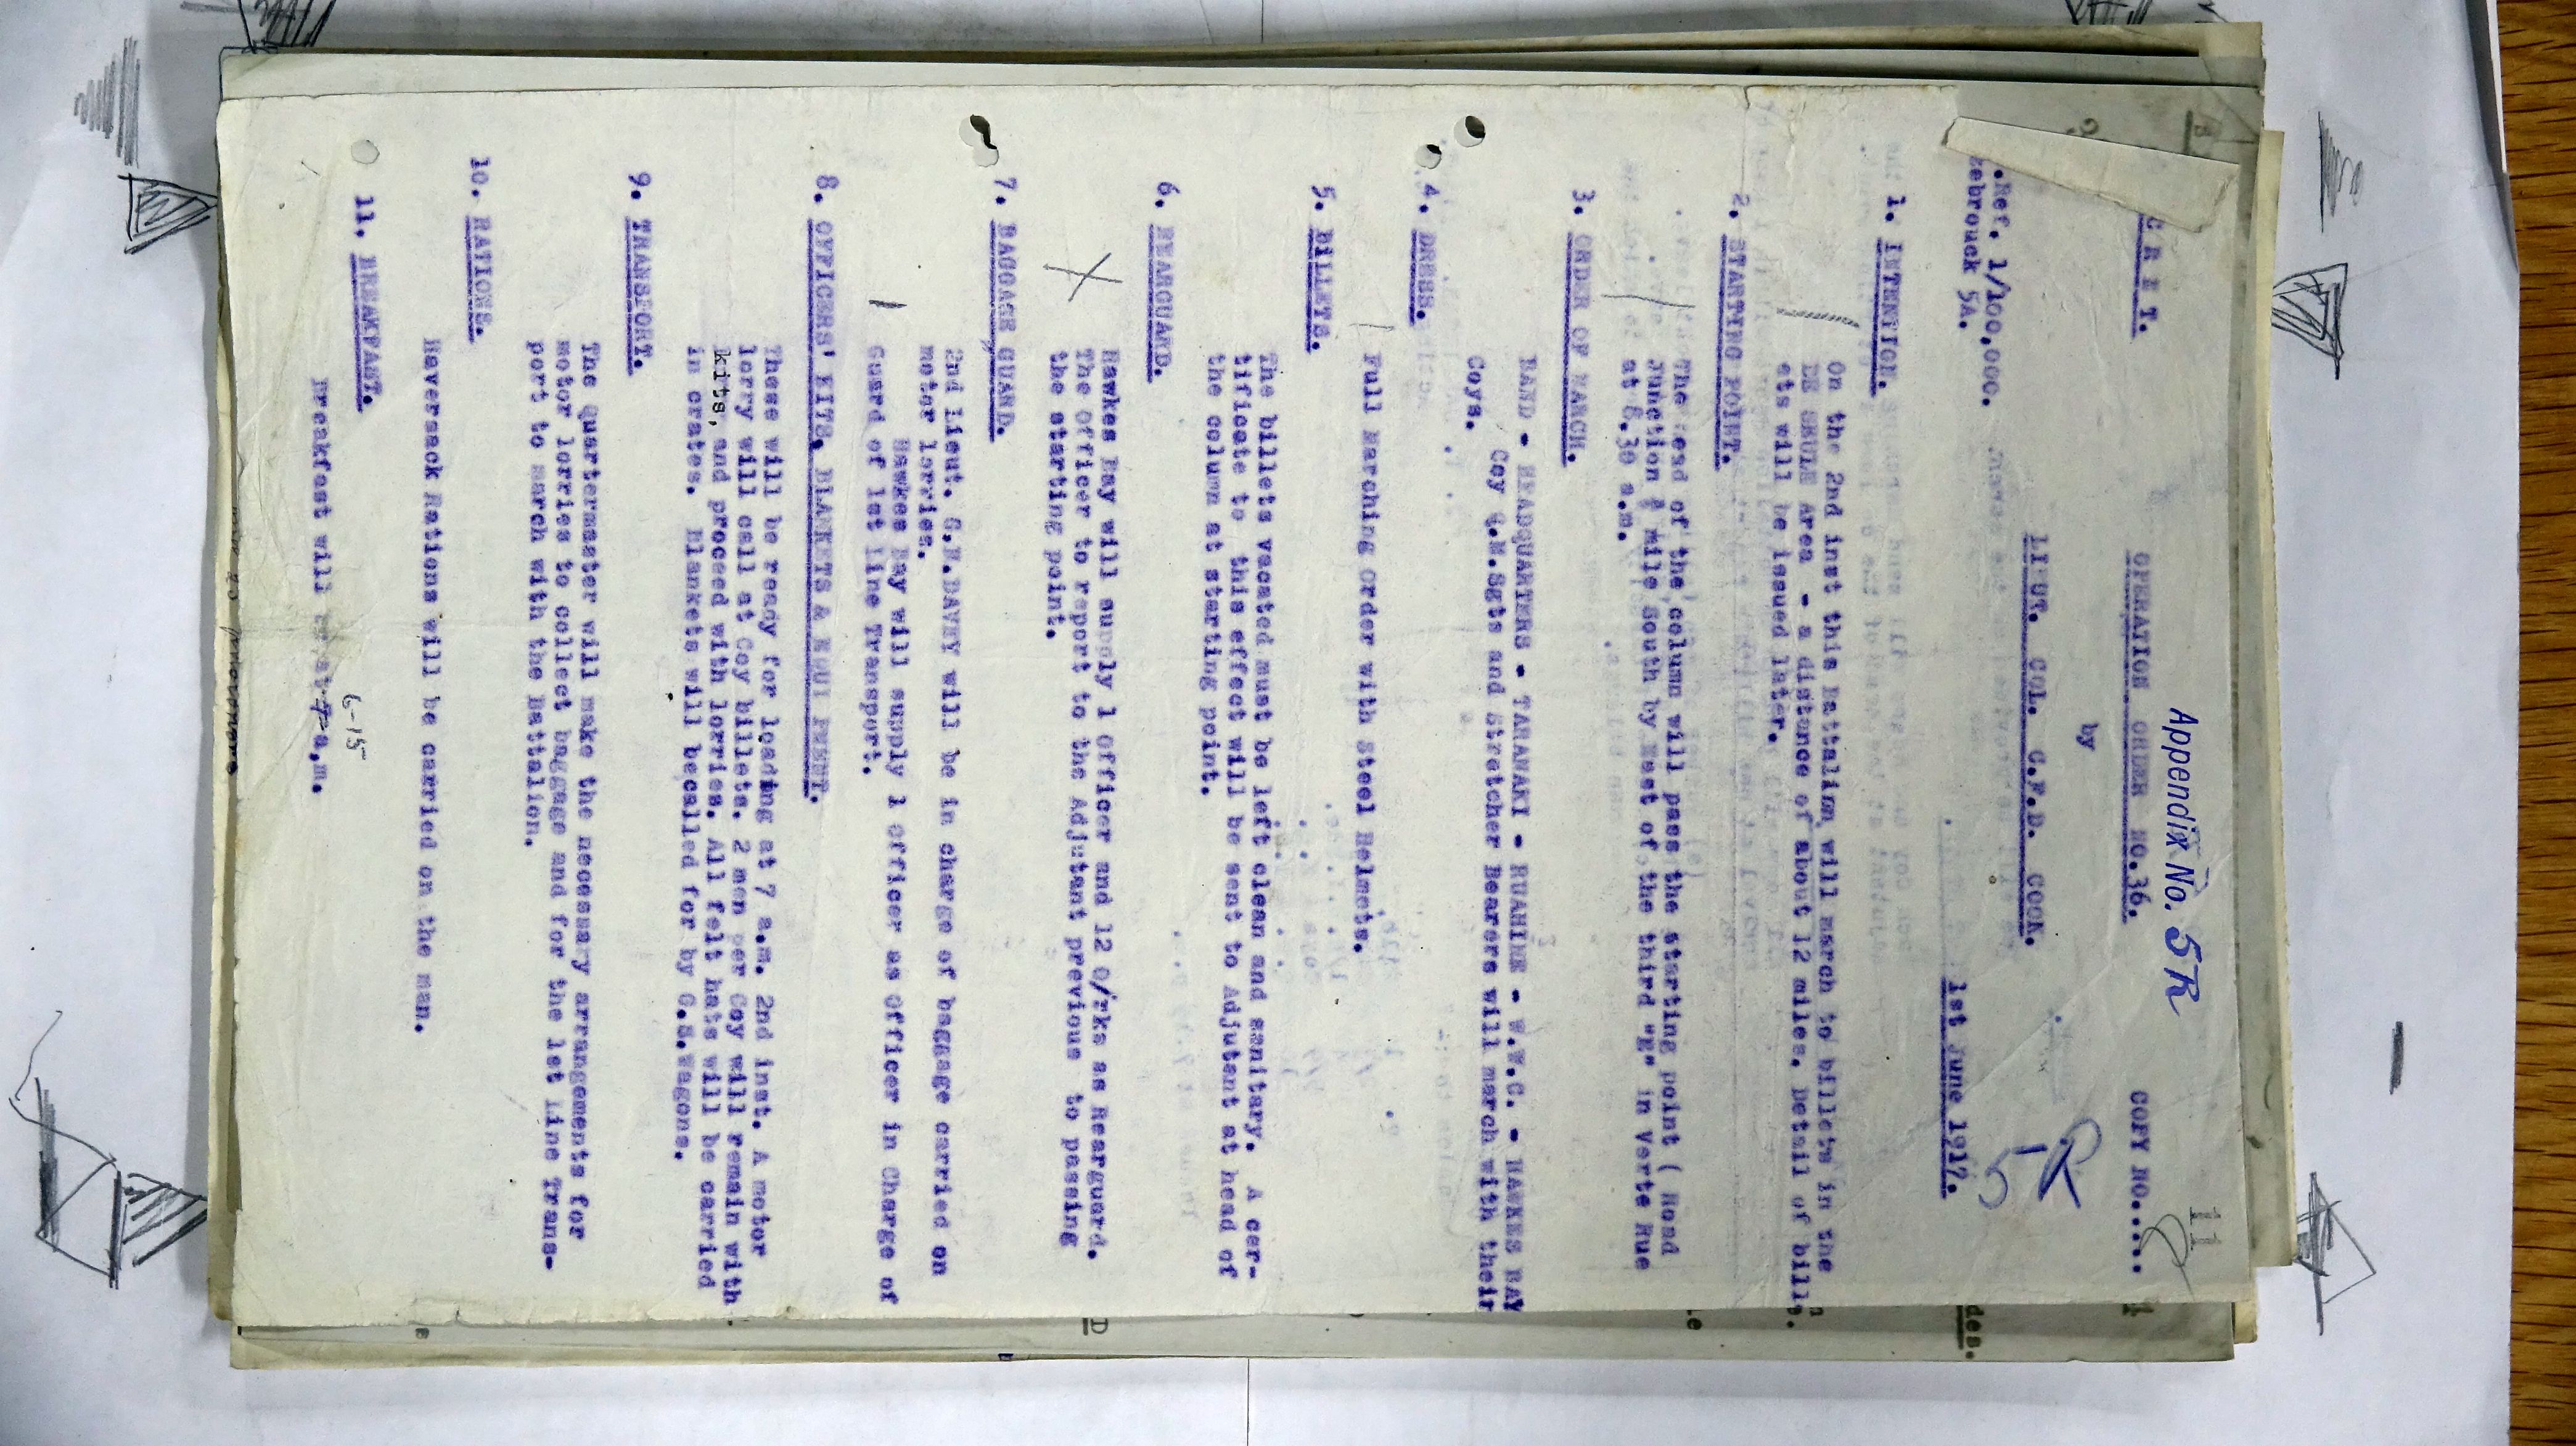 Appendix No. 5R
11
C R E T.
OPERATION ORDER NO.36.
COPY NO.....
by
LIEUT. COL. C.F.D. COOK.
5R
.Ref. 1/100,000.
zebrouck 5A.
1st June 1917.
1. INTENTION.
On the 2nd inst this Battalion will march to billets in the
DE SEULE Area - a distance of about 12 miles. Detail of bill-
ets will be issued later.
2. STARTING POINT.
The head of the column will pass the starting point ( Road
Junction mile South by East of the third "E" in Verte Rue
at 8.30 a.m.
3. ORDER OF MARCH.
BAND - HEADQUARTERS - TARANAKI - RUAHINE - W.W.C. - HAWKES BAY
Coy Q.M.Sgts and Stretcher Bearers will march with their
Coys.
4. DRESS.
Full Marching Order with Steel Helmets.
5. BILLETS.
The billets vacated must be left clean and sanitary. A cer-
tificate to this effect will be sent to Adjutant at head of
the column at starting point.
6. REARGUARD.
Hawkes Bay will supply 1 officer and 12 O/Rks as Rearguard.
The Officer to report to the Adjutant previous to passing
the starting point.
7. BAGGAGE GUARD.
2nd Lieut. G.N.DAVEY will be in charge of baggage carried on
motor lorries.
Hawkes Bay will supply 1 officer as Officer in Charge of
Guard of 1st Line Transport.
8. OFFICERS' KITS, BLANKETS & EQUIPMENT.
These will be ready for loading at 7 a.m. 2nd inst. A motor
lorry will call at Coy billets. 2 men per Coy will remain with
kits, and proceed with lorries. All felt hats will be carried
in crates. Blankets will becalled for by G.S.Wagons.
9. TRANSPORT.
The Quartermaster will make the necessary arrangements for
motor lorries to collect baggage and for the 1st Line Trans-
port to march with the Battalion.
10. RATIONS.
Haversack Rations will be carried on the man.
11. BREAKFAST.
6-15
Breakfast will be at 7 a.m.